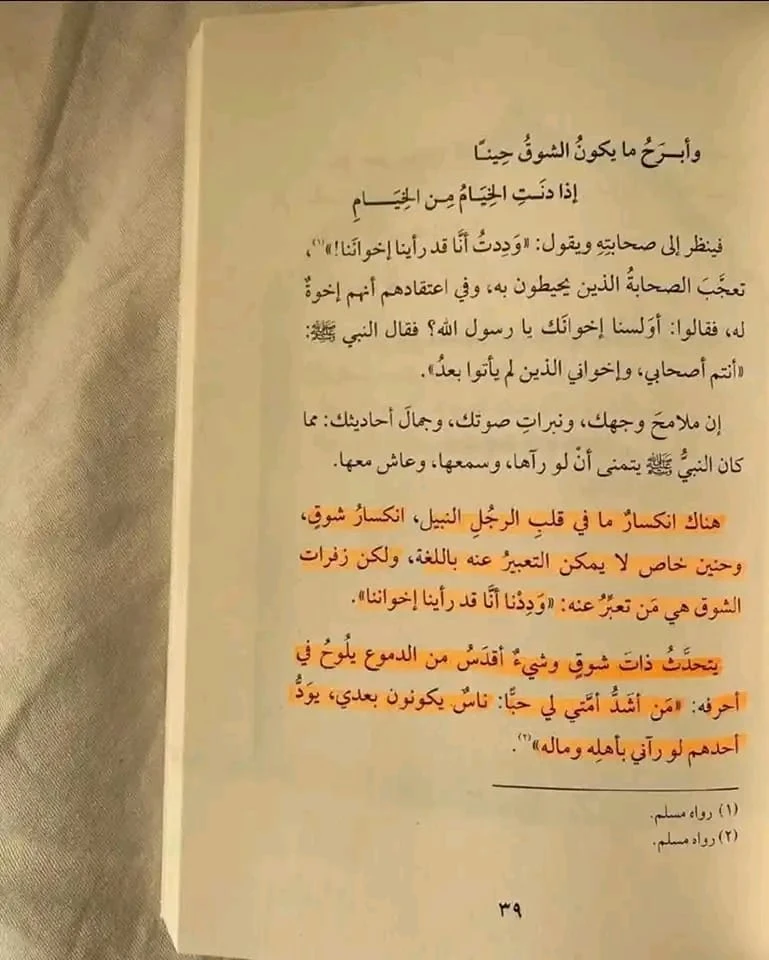 وأبـرَحُ ما يكونُ الشوقُ حِينـًا
إذا دنَـتِ الخِيَامُ مِـن الخِيَـــامِ
فينظر إلى صحابتِهِ ويقول: «وَدِدتُ أنَّا قد رأينا إخوانَنا!»(١)،
تعجَّبَ الصحابةُ الذين يحيطون به، وفي اعتقادهم أنهم إخوةٌ
له، فقالوا: أوَلسنا إخوانَك يا رسول الله؟ فقال النبي ﷺ:
«أنتم أصحابي، وإخواني الذين لم يأتوا بعدُ».
إن ملامحَ وجهك، ونبراتِ صوتك، وجمالَ أحاديثك: مما
كان النبيُّ ﷺ يتمنى أنْ لو رآها، وسمعها، وعاش معها.
هناك انكسارٌ ما في قلبِ الرجُلِ النبيل، انكسارُ شوقٍ،
وحنين خاص لا يمكن التعبيرُ عنه باللغة، ولكن زفرات
الشوق هي مَن تعبِّرُ عنه: «وَدِدْنا أنَّا قد رأينا إخواننا».
يتحدَّثُ ذاتَ شوقٍ وشيءٌ أقدَسُ من الدموع يلُوحُ في
أحرفه: «مَن أشَدُّ أمَّتي لي حبًّا: ناسٌ يكونون بعدي، يوَدُّ
أحدهم لو رآني بأهلِه وماله»(٢).
(١) رواه مسلم.
(٢) رواه مسلم.
٣٩